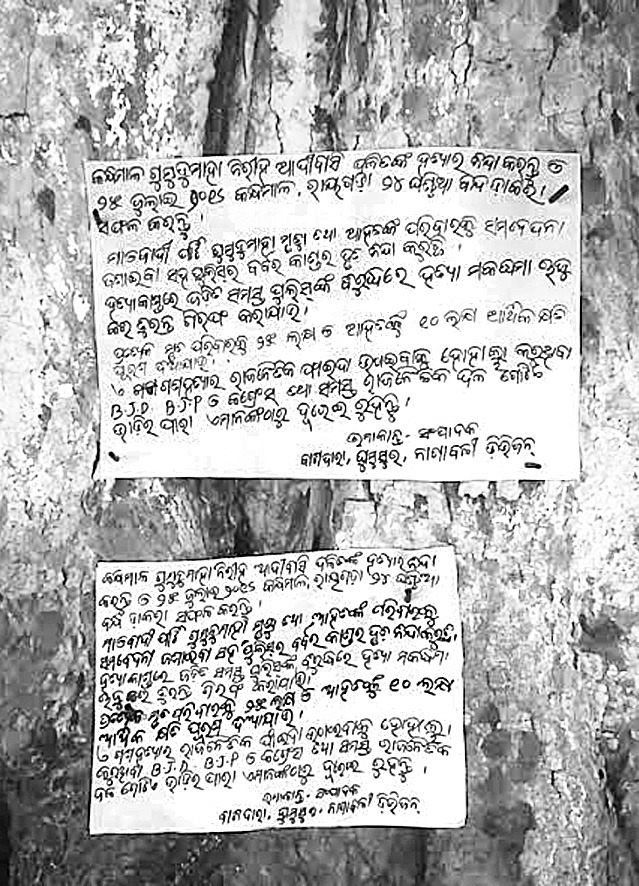 କନ୍ଧମାଳ ଗୁମୁଡୁମାହା ନିରୀହ ଆଦୀବାସି ଦଳିତଙ୍କ ହତ୍ୟାର ନିନ୍ଦା କରନ୍ତୁ ଓ
୨୫ ଜୁଲାଇ ୨୦୧୬ କନ୍ଧମାଳ, ରାୟଗଡ଼ା ୨୪ ଘଣ୍ଟିଆ ବନ୍ଦ ଡାକରା
ସଫଳ କରନ୍ତୁ।
ମାଓବାଦୀ ପାର୍ଟି ଗୁମୁଡୁମାହା ମୃତ୍ୟୁ ଥୋ ଆହତଙ୍କ ପରିବାରକୁ ସମବେଦନା
ଜଣାଇବା ସହ ପୁଲିସର ବର୍ବର କାଣ୍ଡର ଦୃଢ ନିନ୍ଦା କରୁଅଛି।
ହତ୍ୟାକାଣ୍ଡରେ ଜଡ଼ିତ ସମସ୍ତ ପୁଲିସଙ୍କ ବିରୁଦ୍ଧରେ ହତ୍ୟା ମକଦ୍ଦମା ରୁଜୁ
କରି ତୁରନ୍ତ ଗିରଫ କରାଯାଉ।
ପ୍ରତ୍ୟେକ ମୃତ ପରିବାରକୁ ୨୫ ଲକ୍ଷ ଓ ଆହତଙ୍କୁ ୧୦ ଲକ୍ଷ ଆର୍ଥିକ କ୍ଷତି
ପୂରଣ ଦିଆଯାଉ।
ଏ ଗଣହତ୍ୟାର ରାଜନୈତିକ ଫାଇଦା ଉଠାଇବାକୁ ହୋହାଲ୍ଲା କରୁଥିବା
B.J.D. B.J.P ଓ କଂଗ୍ରେସ ଥୋ ସମସ୍ତ ରାଜନୈତିକ ଦଳ ଗୋଟିଏ
ଭାଡ଼ିର ପାରା ଏମାନଙ୍କଠାରୁ ଦୂରେଇ ରୁହନ୍ତୁ।
ଉମାକାନ୍ତ- ସଂପାଦକ
ବାଂଶଧାରା, ଘୁମୁସୁର, ନାଗାବଳୀ ଡ଼ିଭିଜନ୍
କନ୍ଧମାଳ ଗୁମୁଡୁମାହା ନିରୀହ ଆଦୀବାସି ଦଳିତଙ୍କ ହତ୍ୟାର ନିନ୍ଦା
କରନ୍ତୁ ଓ ୨୫ ଜୁଲାଇ ୨୦୧୬ କନ୍ଧମାଳ, ରାୟଗଡ଼ା ୨୪ ଘଣ୍ଟିଆ
ବନ୍ଦ ଡାକରା ସଫଳ କରନ୍ତୁ।
ମାଓବାଦୀ ପାର୍ଟି ଗୁମୁଡୁମାହା ମୃତ୍ୟୁ ଥୋ ଆହତଙ୍କ ପରିବାରକୁ
ସମବେଦନା ଜଣାଇବା ସହ ପୁଲିସର ବର୍ବର କାଣ୍ଡର ଦୃଢ ନିନ୍ଦା କରୁଅଛି।
ହତ୍ୟାକାଣ୍ଡରେ ଜଡ଼ିତ ସମସ୍ତ ପୁଲିସଙ୍କ ବିରୁଦ୍ଧରେ ହତ୍ୟା ମକଦ୍ଦମା
ରୁଜୁ କରି ତୁରନ୍ତ ଗିରଫ କରାଯାଉ।
ପ୍ରତ୍ୟେକ ମୃତ ପରିବାରକୁ ୨୫ ଲକ୍ଷ ଓ ଆହତଙ୍କୁ ୧୦ ଲକ୍ଷ
ଆର୍ଥିକ କ୍ଷତି ପୂରଣ ଦିଆଯାଉ।
ଏ ଗଣହତ୍ୟାର ରାଜନୈତିକ ଫାଇଦା ଉଠାଇବାକୁ ହୋହାଲ୍ଲା
କରୁଥିବା B.J.D. B.J.P ଓ କଂଗ୍ରେସ ଥୋ ସମସ୍ତ ରାଜନୈତିକ
ଦଳ ଗୋଟିଏ ଭାଡ଼ିର ପାରା ଏମାନଙ୍କଠାରୁ ଦୂରେଇ ରୁହନ୍ତୁ।
ଉମାକାନ୍ତ- ସଂପାଦକ
ବାଂଶଧାରା, ଘୁମୁସୁର, ନାଗାବଳୀ ଡ଼ିଭିଜନ୍